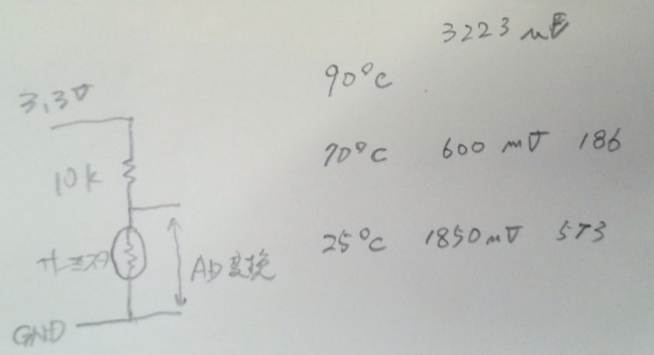 3223 mV
90°C
3.3V
70°C 600 mV 186
10k
25°C 1850mV 573
サーミスタ
AD変換
GND